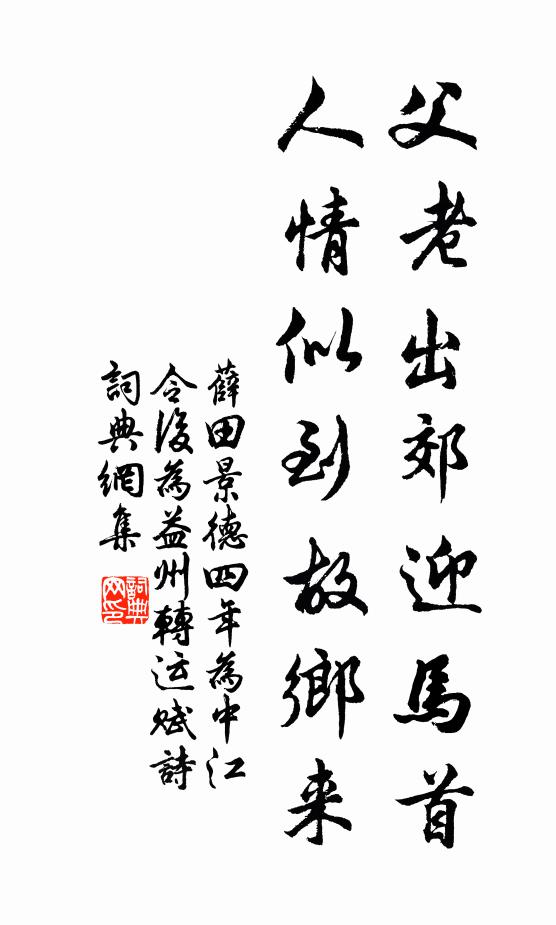 父老出郊迎馬首
人情似到故鄉来
薛田景德四年為中江
令後為益州轉运赋詩
詞典網集
詞典
网印